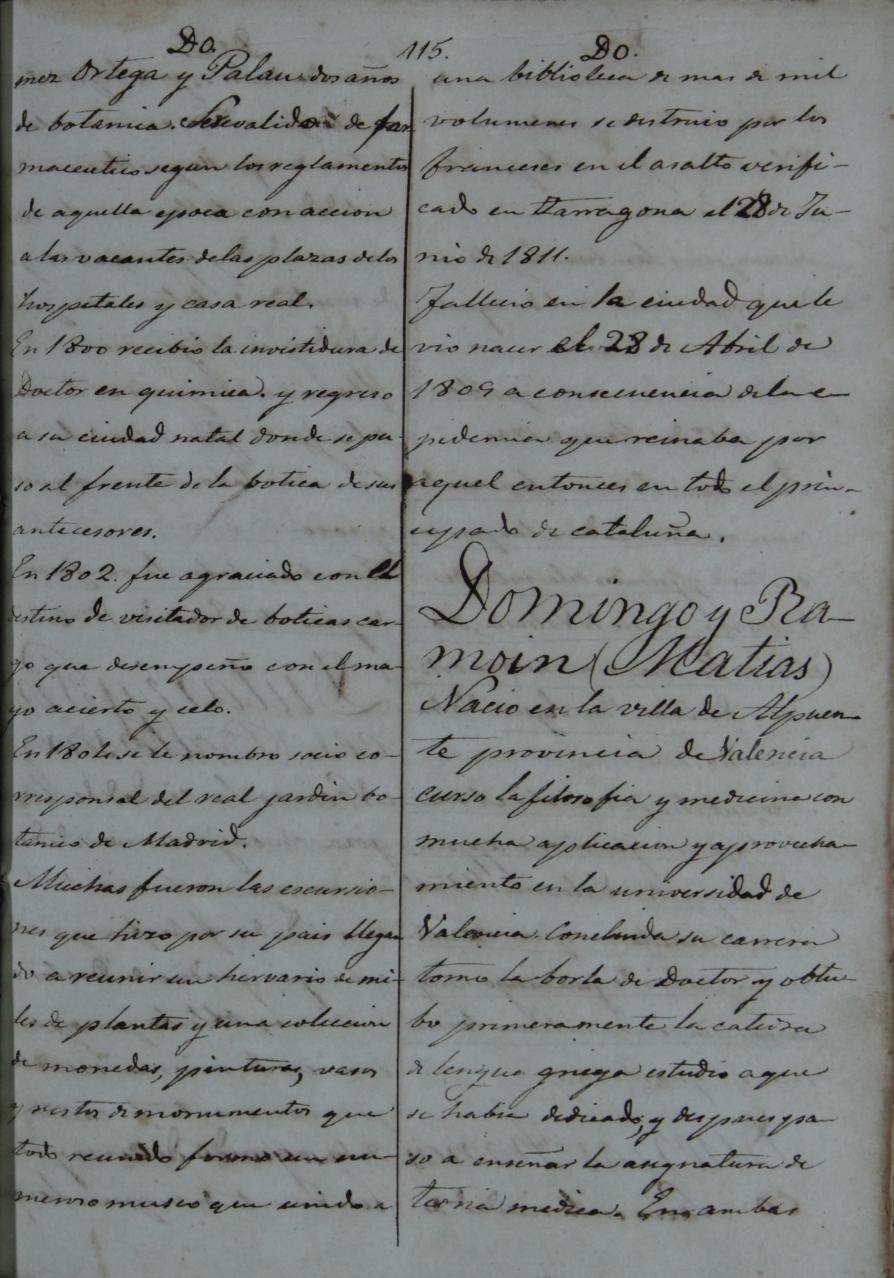 Do.
115.
Do.
mez Ortega y Palau dos años
de botanica. Se revalido de far
maceutico segun los reglamentos
de aquella epoca con accion
a las vacantes de las plazas de los
hospitales y casa real.
En 1800 recibio la investidura de
Doctor en quimica. y regreso
a su ciudad natal donde se pu-
so al frente de la botica de sus
antecesores.
En 1802. fue agraciado con el
destino de visitador de boticas car-
go que desempeño con el ma-
yo acierto y celo.
En 1804 se le nombro socio co-
rresponsal del real jardin bo-
tanico de Madrid.
Muchas fueron las escursio-
nes que hizo por su pais llegan
do a reunir un hervario de mi-
les de plantas y una coleccion
de monedas, pinturas, vasos
y restos de monumentos que
todo reunido formo un nu-
meroso museo que unido a
una biblioteca de mas de mil
volumenes se destruio por los
franceses en el asalto verifi-
cado en Tarragona el 28 de Ju-
nio de 1811.
Fallecio en la ciudad que le
vio nacer el 28 de Abril de
1809 a consecuencia de la e-
pidemia que reinaba por
aquel entonces en todo el prin-
cipado de cataluña.
Domingo y Ra-
moin (Matias)
Nacio en la villa de Alpuen-
te provincia de Valencia
curso la filosofia y medicina con
mucha aplicacion y aprovecha-
miento en la universidad de
Valencia. Concluida su carrera
tomo la borla de Doctor y obtu-
bo primeramente la catedra
de lengua griega estudio a que
se habia dedicado, y despues pa-
so a enseñar la asignatura de
teria medica. En ambas